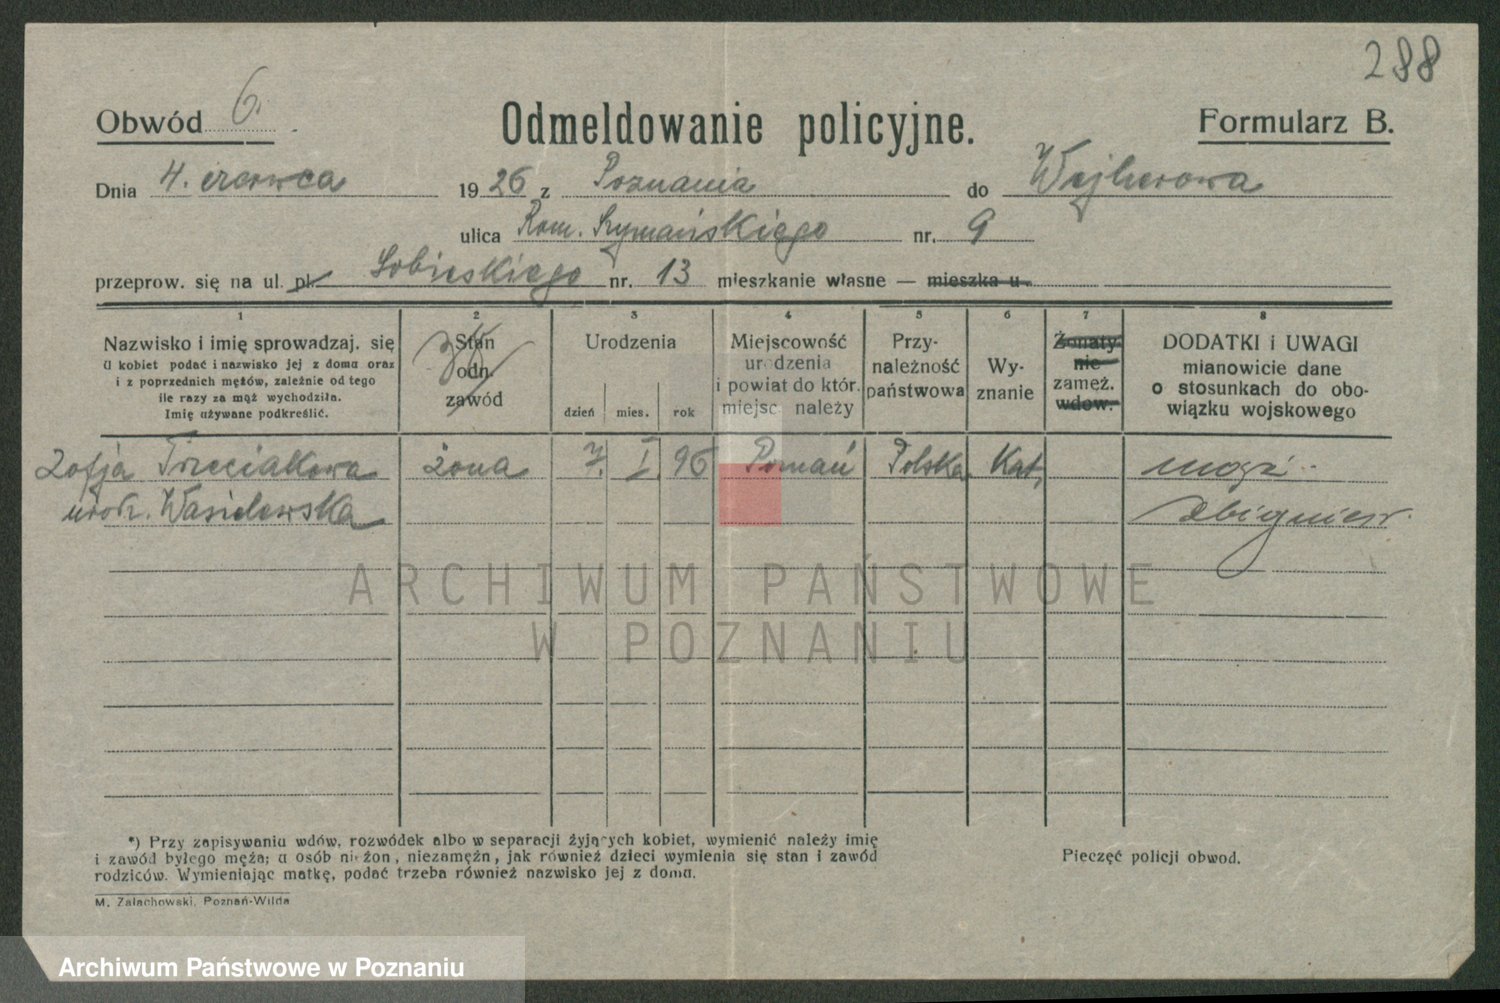 288
Obwód 6.
Odmeldowanie policyjne.
Formularz B.
Dnia 4. czerwca 1926 z Poznania do Wejherowa
ulica Rom. Szymańskiego nr. 9
przeprow. się na ul. pl. Sobieskiego nr. 13 mieszkanie własne — mieszka u
1 2 3 4 5 6 7 8
Nazwisko i imię sprowadzaj. się
U kobiet podać i nazwisko jej z domu oraz
i z poprzednich mężów, zależnie od tego
ile razy za mąż wychodziła.
Imię używane podkreślić.
Stan
odn.
zawód
Urodzenia
dzień mies. rok
Miejscowość
urodzenia
i powiat do któr.
miejsc. należy
Przy-
należność
państwowa
Wy-
znanie
Żonaty
nie
zamęż.
wdow.
DODATKI i UWAGI
mianowicie dane
o stosunkach do obo-
wiązku wojskowego
Zofja Trzeciakowa żona 7. I. 96 Poznań Polska Kat.
urodz. Wasielewska Zbigniew
ARCHIWUM PAŃSTWOWE
W POZNANIU
*) Przy zapisywaniu wdów, rozwódek albo w separacji żyjących kobiet, wymienić należy imię
i zawód byłego męża; u osób nieżon., niezamężn., jak również dzieci wymienia się stan i zawód
rodziców. Wymieniając matkę, podać trzeba również nazwisko jej z domu.
Pieczęć policji obwod.
M. Zalachowski, Poznań-Wilda
Archiwum Państwowe w Poznaniu